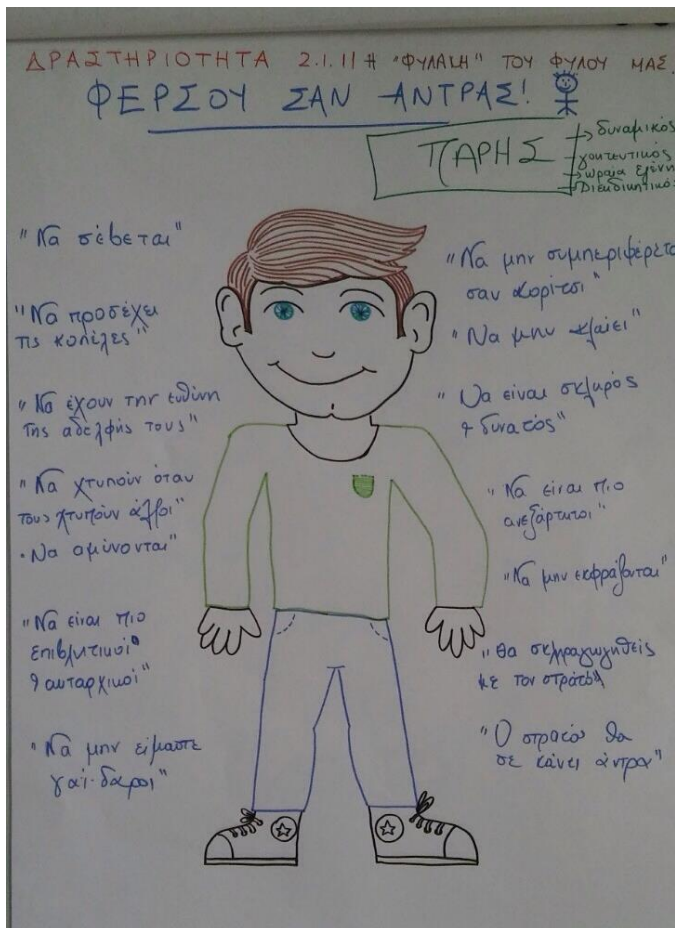 ΔΡΑΣΤΗΡΙΟΤΗΤΑ 2.1.11 Η "ΦΥΛΑΚΗ" ΤΟΥ ΦΥΛΟΥ ΜΑΣ.
ΦΕΡΣΟΥ ΣΑΝ ΑΝΤΡΑΣ!
ΠΑΡΗΣ
δυναμικός
γοητευτικός
ωραία ελένη
Διεκδικητικός
"Να σέβεται"
"Να προσέχει
τις κοπέλες"
"Να έχουν την ευθύνη
της αδελφής τους"
"Να χτυπούν όταν
τους χτυπούν άλλοι"
·Να αμύνονται"
"Να είναι πιο
επιβλητικοί"
& αυταρχικοί"
"Να μην είμαστε
γαϊ-δαροι"
"Να μην συμπεριφέρετα
σαν κορίτσι"
"Να μην κλαίει"
"Να είναι σκληρός
& δυνατός"
"Να είναι πιο
ανεξάρτητοι"
"Να μην εκφράζονται"
"Θα σκληραγωγηθείς
με τον στρατό"
"Ο στρατός θα
σε κάνει άντρα"